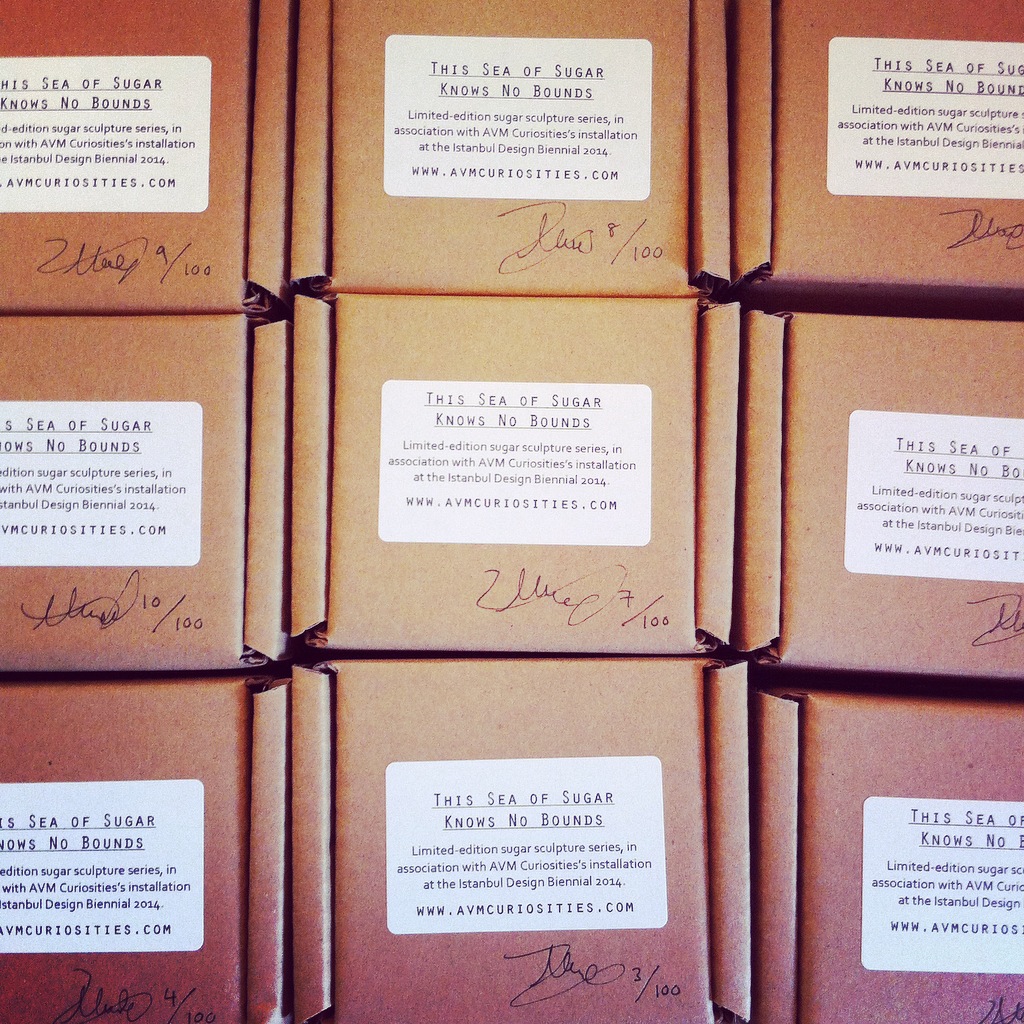 his Sea of Sugar
Knows No Bounds
d-edition sugar sculpture series, in
on with AVM Curiosities's installation
e Istanbul Design Biennial 2014.
.AVMCURIOSITIES.COM
9/100
This Sea of Sugar
Knows No Bounds
Limited-edition sugar sculpture series, in
association with AVM Curiosities's installation
at the Istanbul Design Biennial 2014.
WWW.AVMCURIOSITIES.COM
8/100
This Sea of Sug
Knows No Bound
Limited-edition sugar sculpture s
association with AVM Curiosities's
at the Istanbul Design Biennial
WWW.AVMCURIOSITIES
s Sea of Sugar
nows No Bounds
edition sugar sculpture series, in
with AVM Curiosities's installation
stanbul Design Biennial 2014.
AVMCURIOSITIES.COM
10/100
This Sea of Sugar
Knows No Bounds
Limited-edition sugar sculpture series, in
association with AVM Curiosities's installation
at the Istanbul Design Biennial 2014.
WWW.AVMCURIOSITIES.COM
7/100
This Sea of
Knows No Bo
Limited-edition sugar sculpt
association with AVM Curiositi
at the Istanbul Design Bie
WWW.AVMCURIOSITI
is Sea of Sugar
nows No Bounds
edition sugar sculpture series, in
with AVM Curiosities's installation
Istanbul Design Biennial 2014.
AVMCURIOSITIES.COM
4/100
This Sea of Sugar
Knows No Bounds
Limited-edition sugar sculpture series, in
association with AVM Curiosities's installation
at the Istanbul Design Biennial 2014.
WWW.AVMCURIOSITIES.COM
3/100
This Sea of
Knows No B
Limited-edition sugar sc
association with AVM Curios
at the Istanbul Design
WWW.AVMCURIOSI